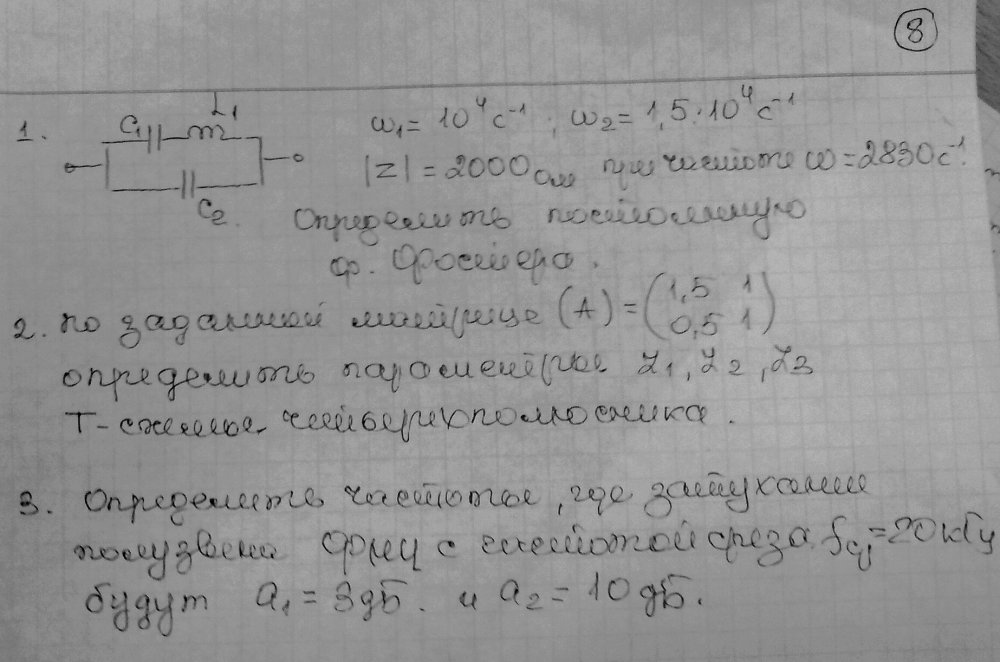 8
1. C₁ L₁ ω₁ = 10⁴ c⁻¹; ω₂ = 1,5·10⁴ c⁻¹
|Z| = 2000 Ом при частоте ω = 2830 c⁻¹.
C₂. Определить постоянную
ф. Фостера.
2. По заданной матрице (A) = (1,5 1
0,5 1)
определить параметры Z₁, Z₂, Z₃
Т-схемы четырехполюсника.
3. Определить частоты, где затухание
полузвена ФНЧ с частотой среза f = 20 кГц
будут a₁ = 3 дБ. и a₂ = 10 дБ.